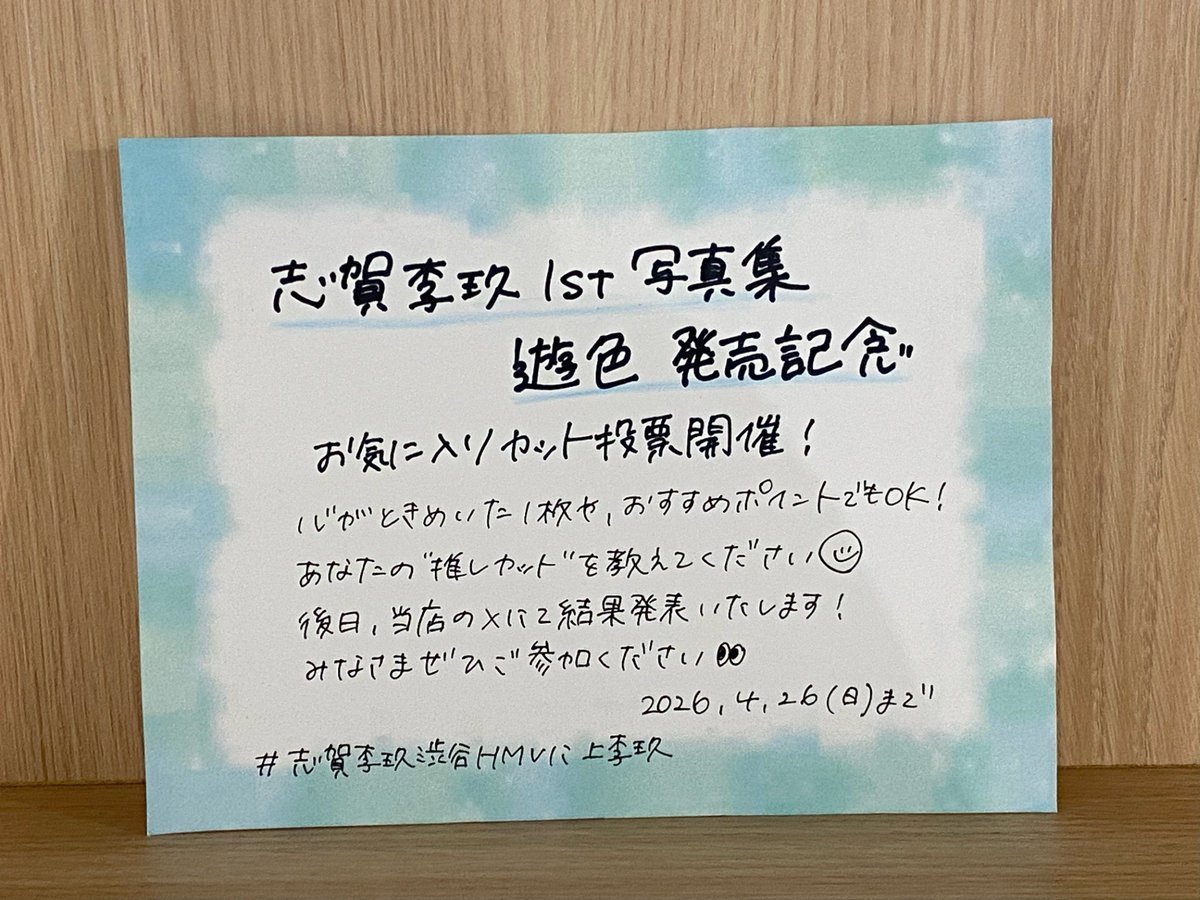 志賀李玖1st写真集
遊色 発売記念
お気に入りカット投票開催！
心がときめいた1枚や、おすすめポイントでもOK！
あなたの"推しカット"を教えてください☺
後日、当店のXにて結果発表いたします！
みなさまぜひご参加ください👀
2026.4.26(日)まで
#志賀李玖渋谷HMVに上李玖